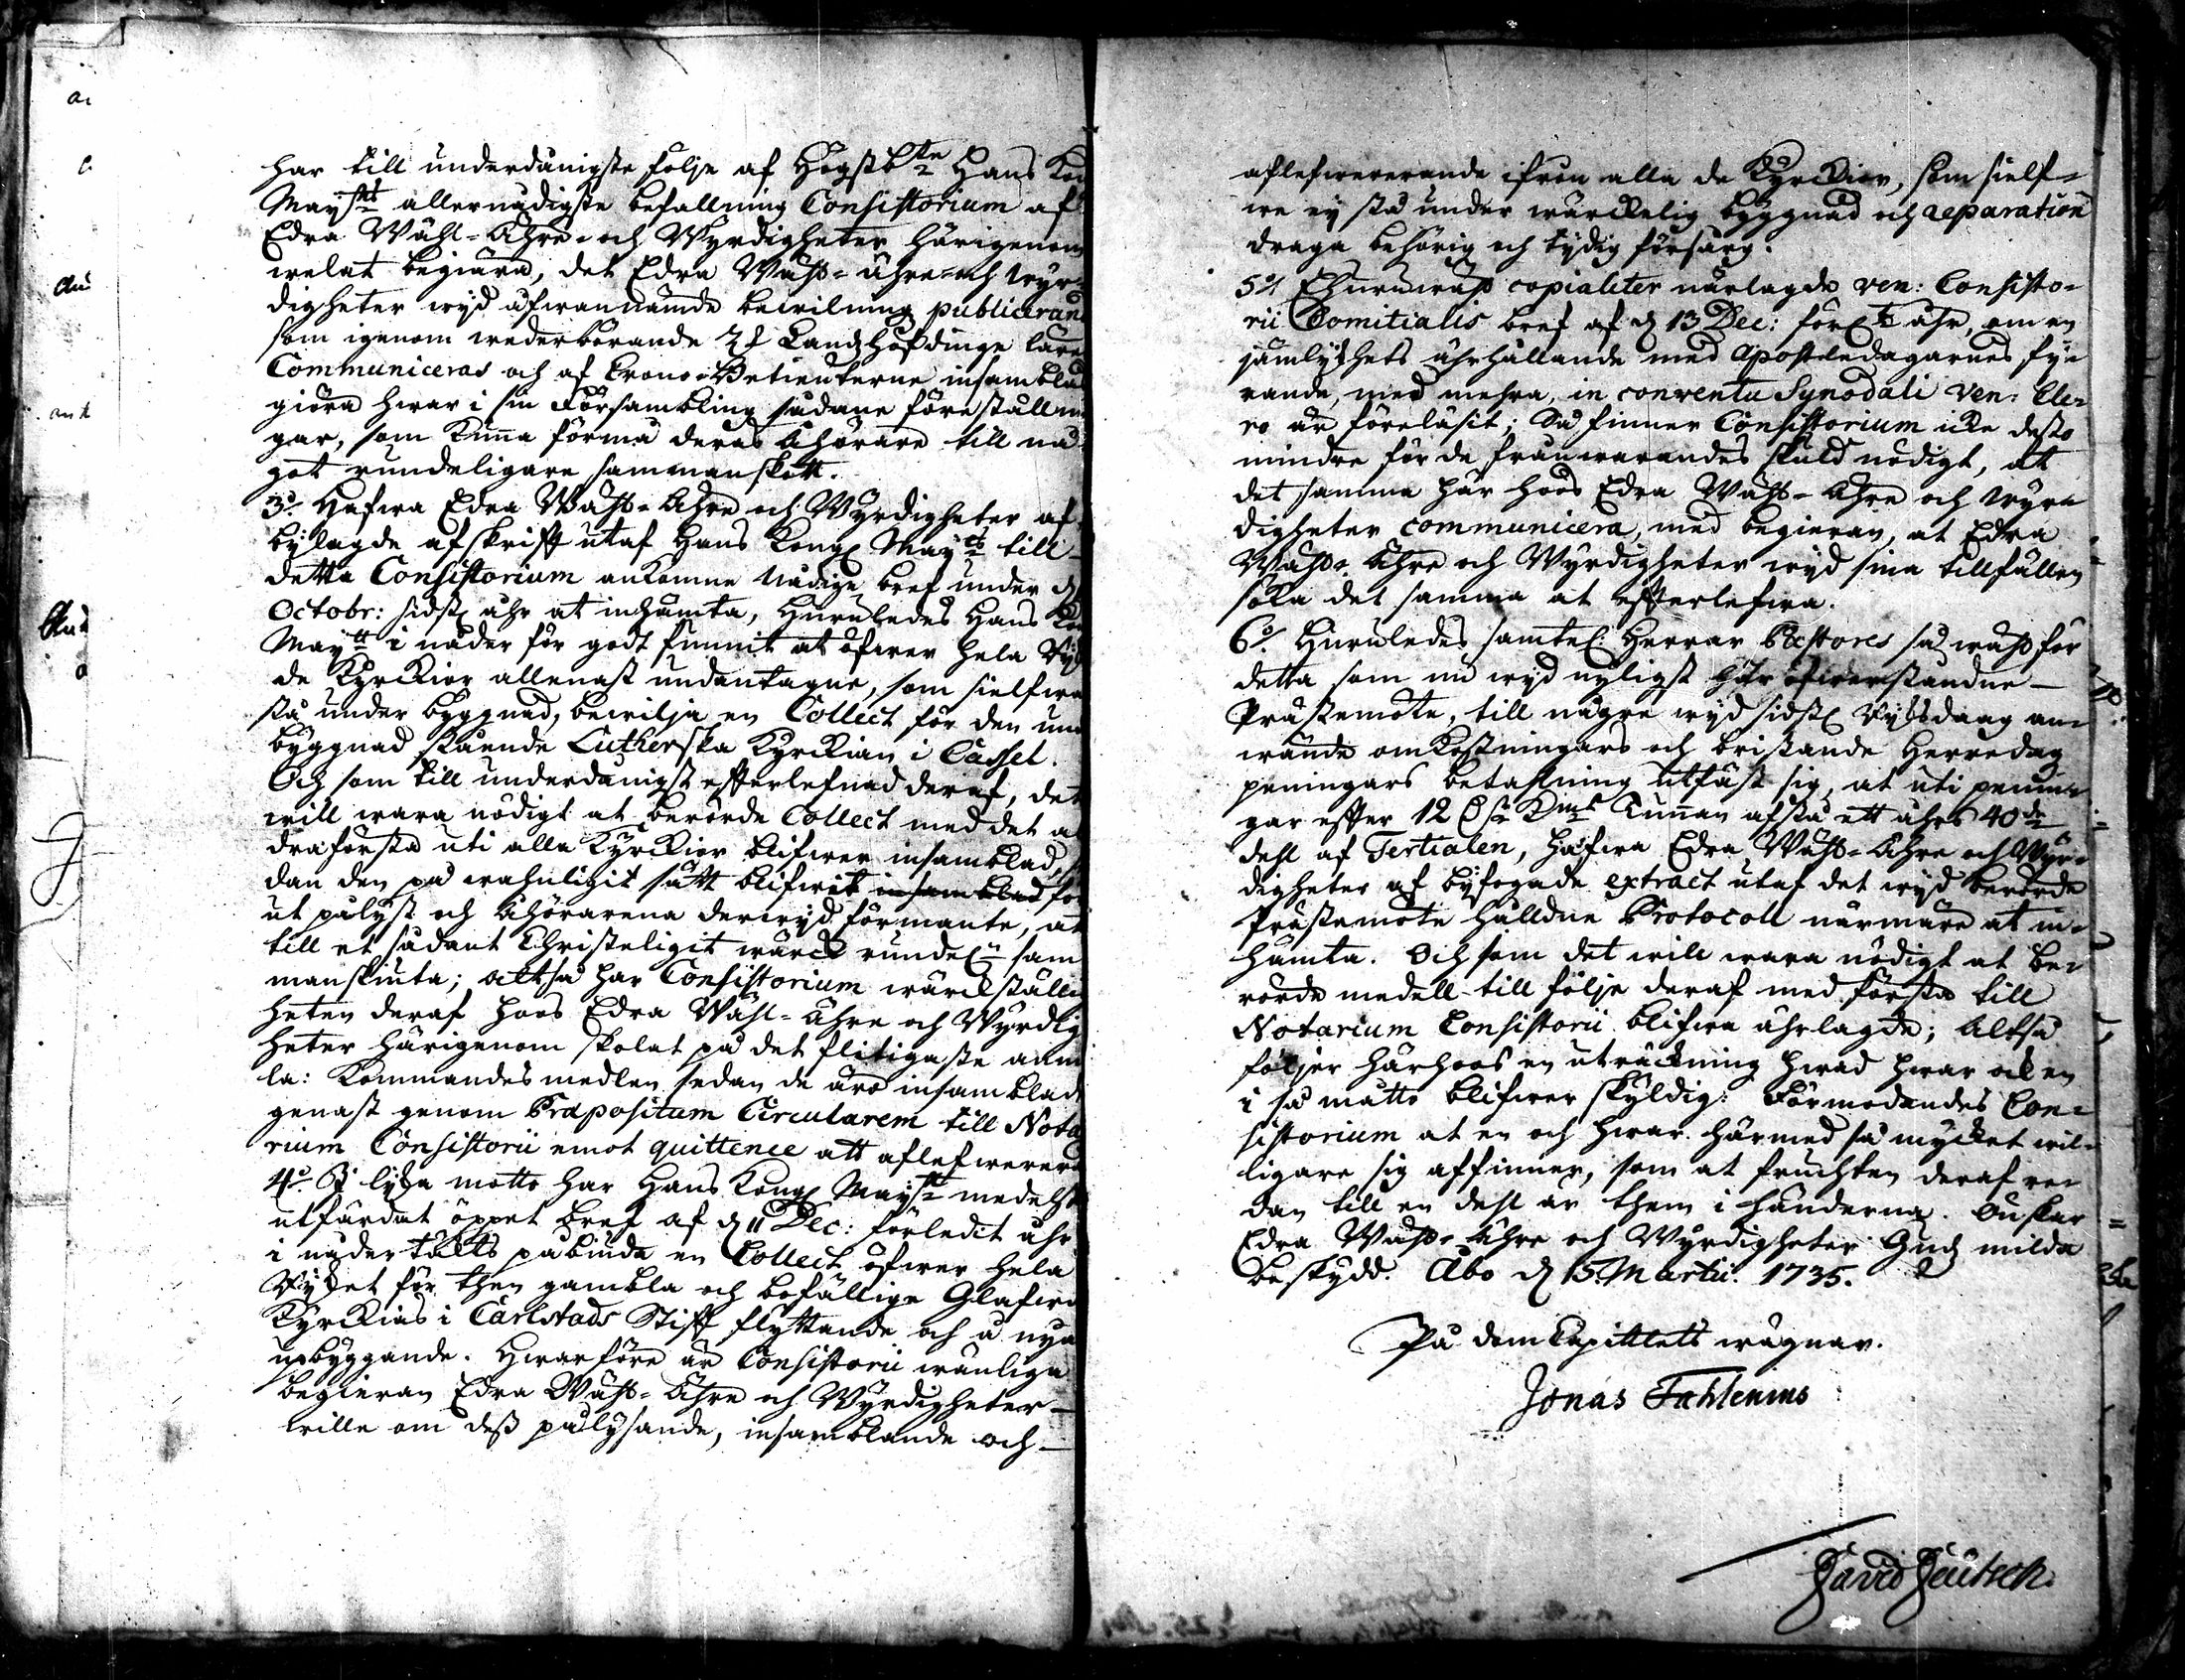 har till underdånigste följe af Högstb:te Hans Kon
May:tts allernådigste befallning Consistorium af
Edra Wähl-Ähre- och Wyrdigheter härigenom
welat begiära, det Edra Wähl-ähre- och wyr-
digheter wyd åfwannämde bewilning publicerand
som igenom wederbörande Landzhöfdinge lärer
Communiceras och af Crono-Betienterne insamblas
giöra hwar i sin Försambling sådane föreställnin
gar, som kunna förmå deras Åhörare till nå-
got rundeligare sammanskott.
3:o Hafwa Edra Wähl-Ähre och Wyrdigheter af
bylagde afskrifft utaf Hans Kongl May:tts till
detta Consistorium ankomne Nådige bref under d
Octobr: sidstl åhr at inhämta, huruledes Hans Kon
May:tt i nåder för godt funnit at öfwer hela Ryk
de Kyrckior allenast undantagne, som sielfwa
stå under byggnad, bewilja en Collect för den und
byggnad stående Lutherska Kyrckian i Cassel.
Och som till underdånigst efterlefnad deraf, det
will wara nödigt at berörde Collect med det al
draförsta uti alla Kyrckior blifwer insamblad, se
dan den på wahnligit sätt blifwit insamblad för
ut pålyst och Åhörarena derwyd förmante, at
till et sådant Christeligit wärck rundel:n sam
manskiuta; altså har Consistorium wärckställig
heten deraf hoos Edra Wähl-Ähre och Wyrdig
heter härigenom skolat på det flitigaste anm
la: Kommandes medlen sedan de äro insamblade
genast genom Præpositum Circularem till Nota
rium Consistorii emot quittence att aflefwerera
4:o På lyka motto har Hans Kongl May:tt medelst
utfärdat öppet bref af d 11 Dec: förledit åhr
i nåder täckts påbiuda en Collect öfwer hela
Ryket för then gambla och bofällige Glafwa
Kyrkias i Carlstads Stift flyttande och å nya
upbyggande. Hwarföre är Consistorii wänliga
begieran Edra Wähl-Ähre och Wyrdigheter
wille om dess pålysande, insamblande och
aflefwererande ifrån alla de Kyrckior, som sielf-
we ey stå under wärckelig byggnad och reparation
draga behörig och tydig försorg.
5:o Ehuruwäl copialiter närlagde ven: Consisto-
rii Comitialis bref af d 13 Dec: förl:t åhr, om en
jämlykhets åhrhållande med Apostledagarnes fy-
rande, med mehra, in conventu Synodali Ven: Cle-
ro är föreläsit; Så finner Consistorium icke desto
mindre för de frånwarandes skuld nödigt, at
det samma här hoos Edra Wähl-Ähre och Wyr-
digheter communicera, med begieran, at Edra
Wähl-Ähre och Wyrdigheter wyd sina tillfällen
söka det samma at efterlefwa.
6:o Huruledes samtel Herrar Pastores så wähl för
detta som nu wyd nyligst här öfwerståndne
Prästemöte, till någre wyd sidstl Ryksdaag an-
wände omkostningars och bristande Herredag
peningars betahlning utfäst sig, at uti pennin-
gar efter 12 Kunnan afstå ett åhrs 40:de
dehl af Tertialen, hafwa Edra Wähl-Ähre och Wyr-
digheter af byfogade extract utaf det wyd berörde
Prästemöte hålldne Protocoll närmare at in-
hämta. Och som det will wara nödigt at be-
rörde medell till följe deraf med första till
Notarium Consistorii blifwa åhrlagde; Altså
följer härhoos en uträckning hwad hwar och en
i så måtto blifwer skyldig: Förmodandes Con-
sistorium at en och hwar härmed så mycket wil-
ligare sig affinner, som at fruchten deraf re-
dan till en dehl är them i händerna. Önskar
Edra Wähl-Ähre och Wyrdigheter Gudz milda
beskydd. Åbo d 15 Martii. 1735.
På dom Capittlets wägnar.
Jonas Fahlenius
David Deutsch.